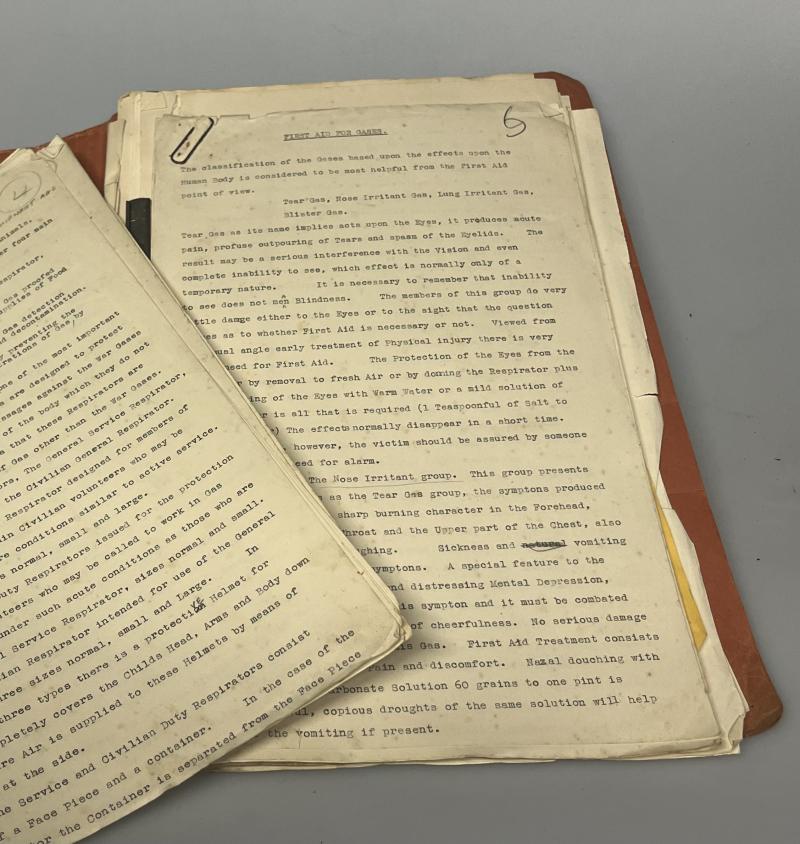 4
nimals.
r four main
spirator.
Gas proofed
upplies of Food
Gas detection
nd decontamination.
y preventing the
rations of Gas, by
ne of the most important
s are designed to protect
ssages against the War Gases
of the body which they do not
a that these Respirators are
f Gas other than the War Gases.
ors, The General Service Respirator,
the Civilian General Respirator.
Respirator designed for members of
in Civilian volunteers who may be
re conditions similar to active service.
s normal, small and large.
uty Respirators issued for the protection
teers who may be called to work in Gas
under such acute conditions as those who are
l Service Respirator, sizes normal and small.
ian Respirator intended for use of the General
ree sizes normal, small and Large. In
three types there is a protective Helmet for
pletely covers the Childs Head, Arms and Body down
re Air is supplied to these Helmets by means of
at the side.
he Service and Civilian Duty Respirators consist
f a Face Piece and a container. In the case of the
or the Container is separated from the Face Piece
5
FIRST AID FOR GASES.
The classification of the Gases based upon the effects upon the
Human Body is considered to be most helpful from the First Aid
point of view.
Tear Gas, Nose Irritant Gas, Lung Irritant Gas,
Blister Gas.
Tear Gas as its name implies acts upon the Eyes, it produces acute
pain, profuse outpouring of Tears and spasm of the Eyelids. The
result may be a serious interference with the Vision and even
complete inability to see, which effect is normally only of a
temporary nature. It is necessary to remember that inability
to see does not mean Blindness. The members of this group do very
ittle damge either to the Eyes or to the sight that the question
es as to whether First Aid is necessary or not. Viewed from
ual angle early treatment of Physical injury there is very
eed for First Aid. The Protection of the Eyes from the
r by removal to fresh Air or by donning the Respirator plus
ing of the Eyes with Warm Water or a mild solution of
r is all that is required (1 Teaspoonful of Salt to
) The effects normally disappear in a short time.
, however, the victim should be assured by someone
eed for alarm.
The Nose Irritant group. This group presents
s as the Tear Gas group, the symptons produced
sharp burning character in the Forehead,
hroat and the Upper part of the Chest, also
ghing. Sickness and natural vomiting
ymptoms. A special feature to the
nd distressing Mental Depression,
is sympton and it must be combated
of cheerfulness. No serious damage
is Gas. First Aid Treatment consists
ain and discomfort. Nazal douching with
rbonate Solution 60 grains to one pint is
l, copious droughts of the same solution will help
the vomiting if present.